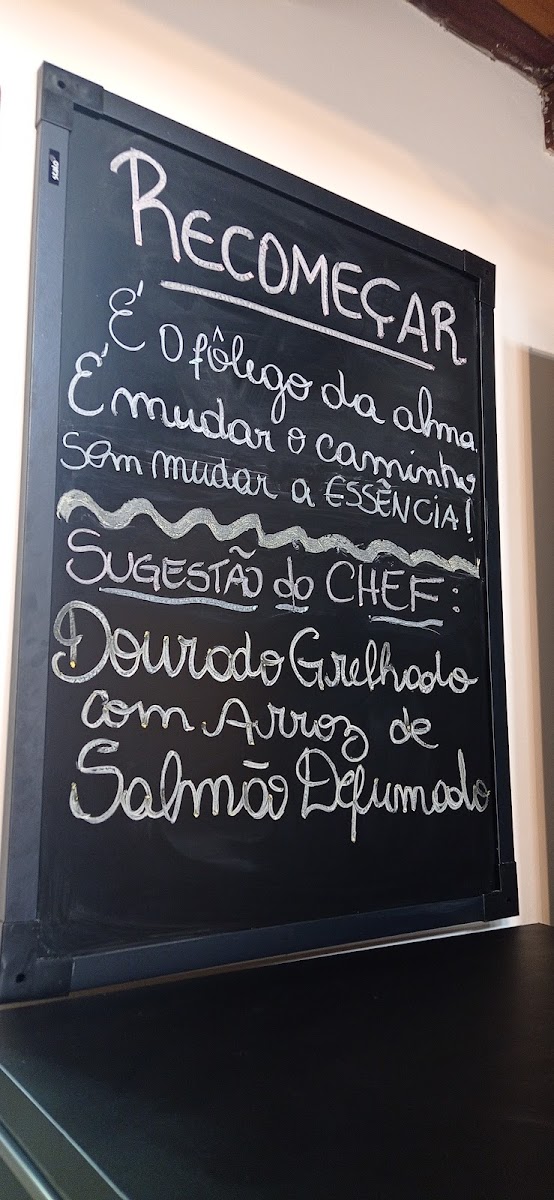 stalo
RECOMEÇAR
É o fôlego da alma.
É mudar o caminho
sem mudar a ESSÊNCIA!
SUGESTÃO do CHEF:
Dourado Grelhado
com Arroz de
Salmão Defumado